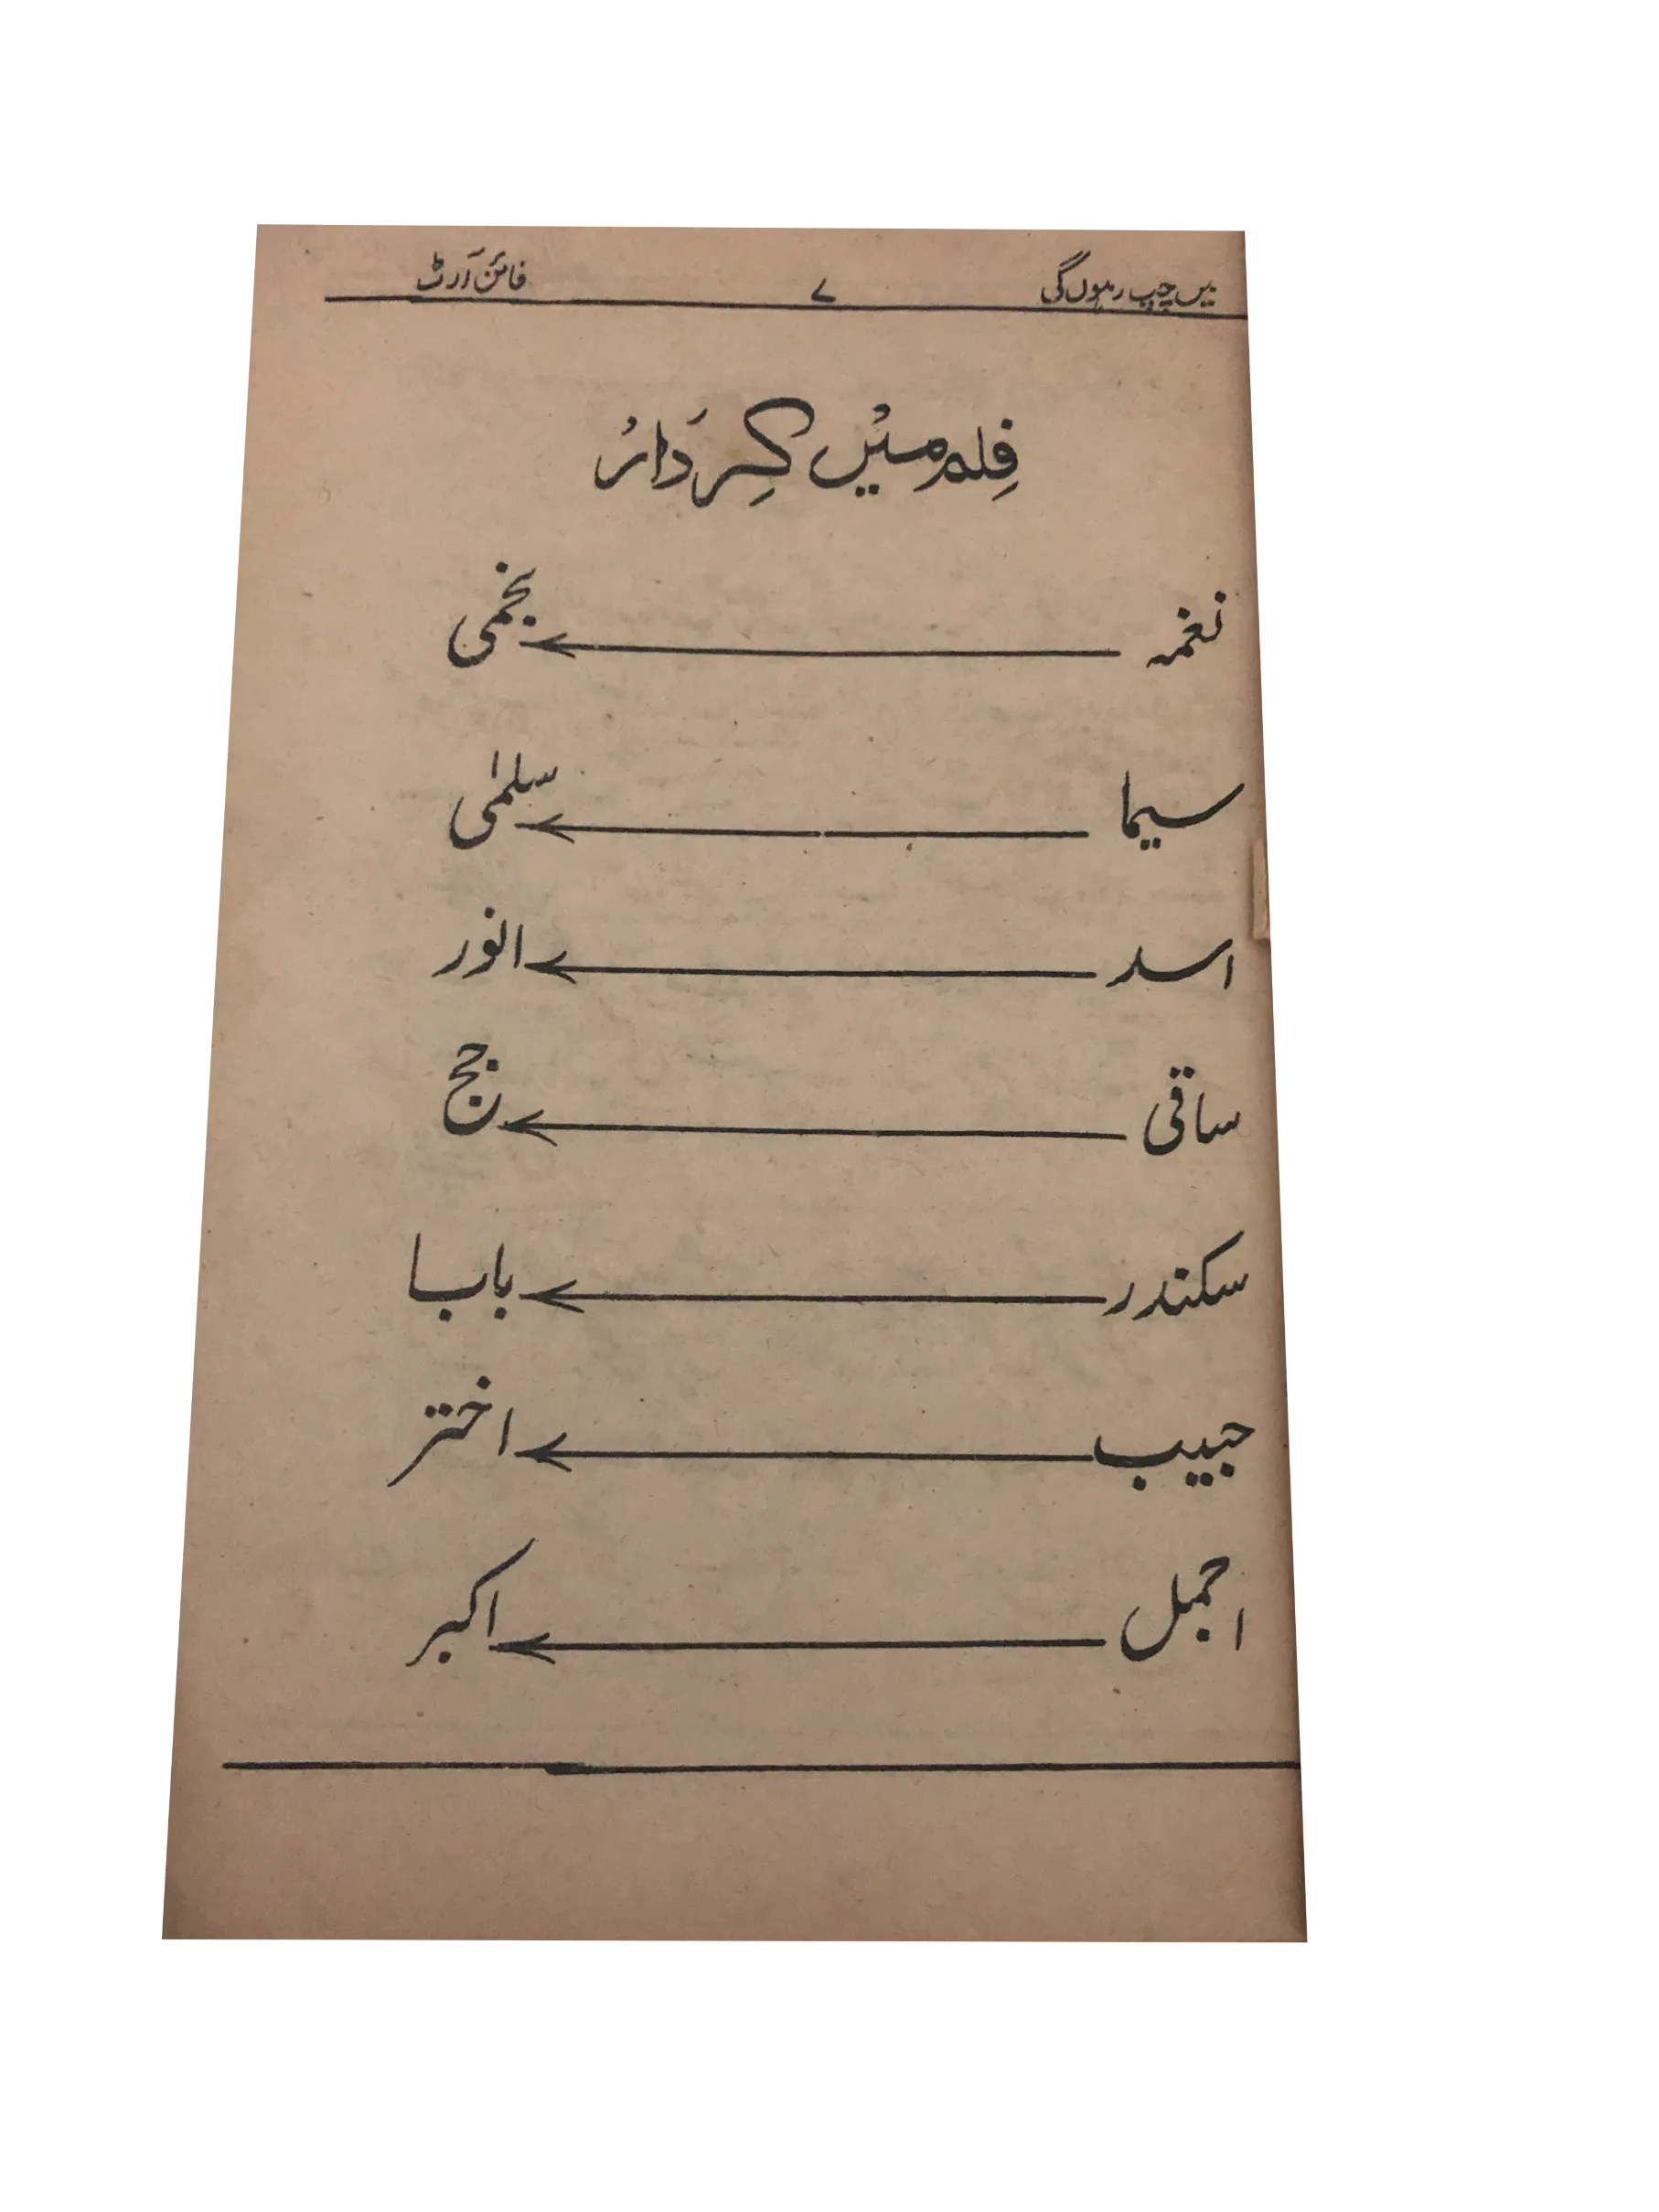 میں چپ رہوں گی ۷ فائن آرٹ
فِلم میں کِردَارُ
نغمہ نجمی
سیما سلمیٰ
اسد انور
ساقی جج
سکندر بابا
حبیب اختر
اجمل اکبر